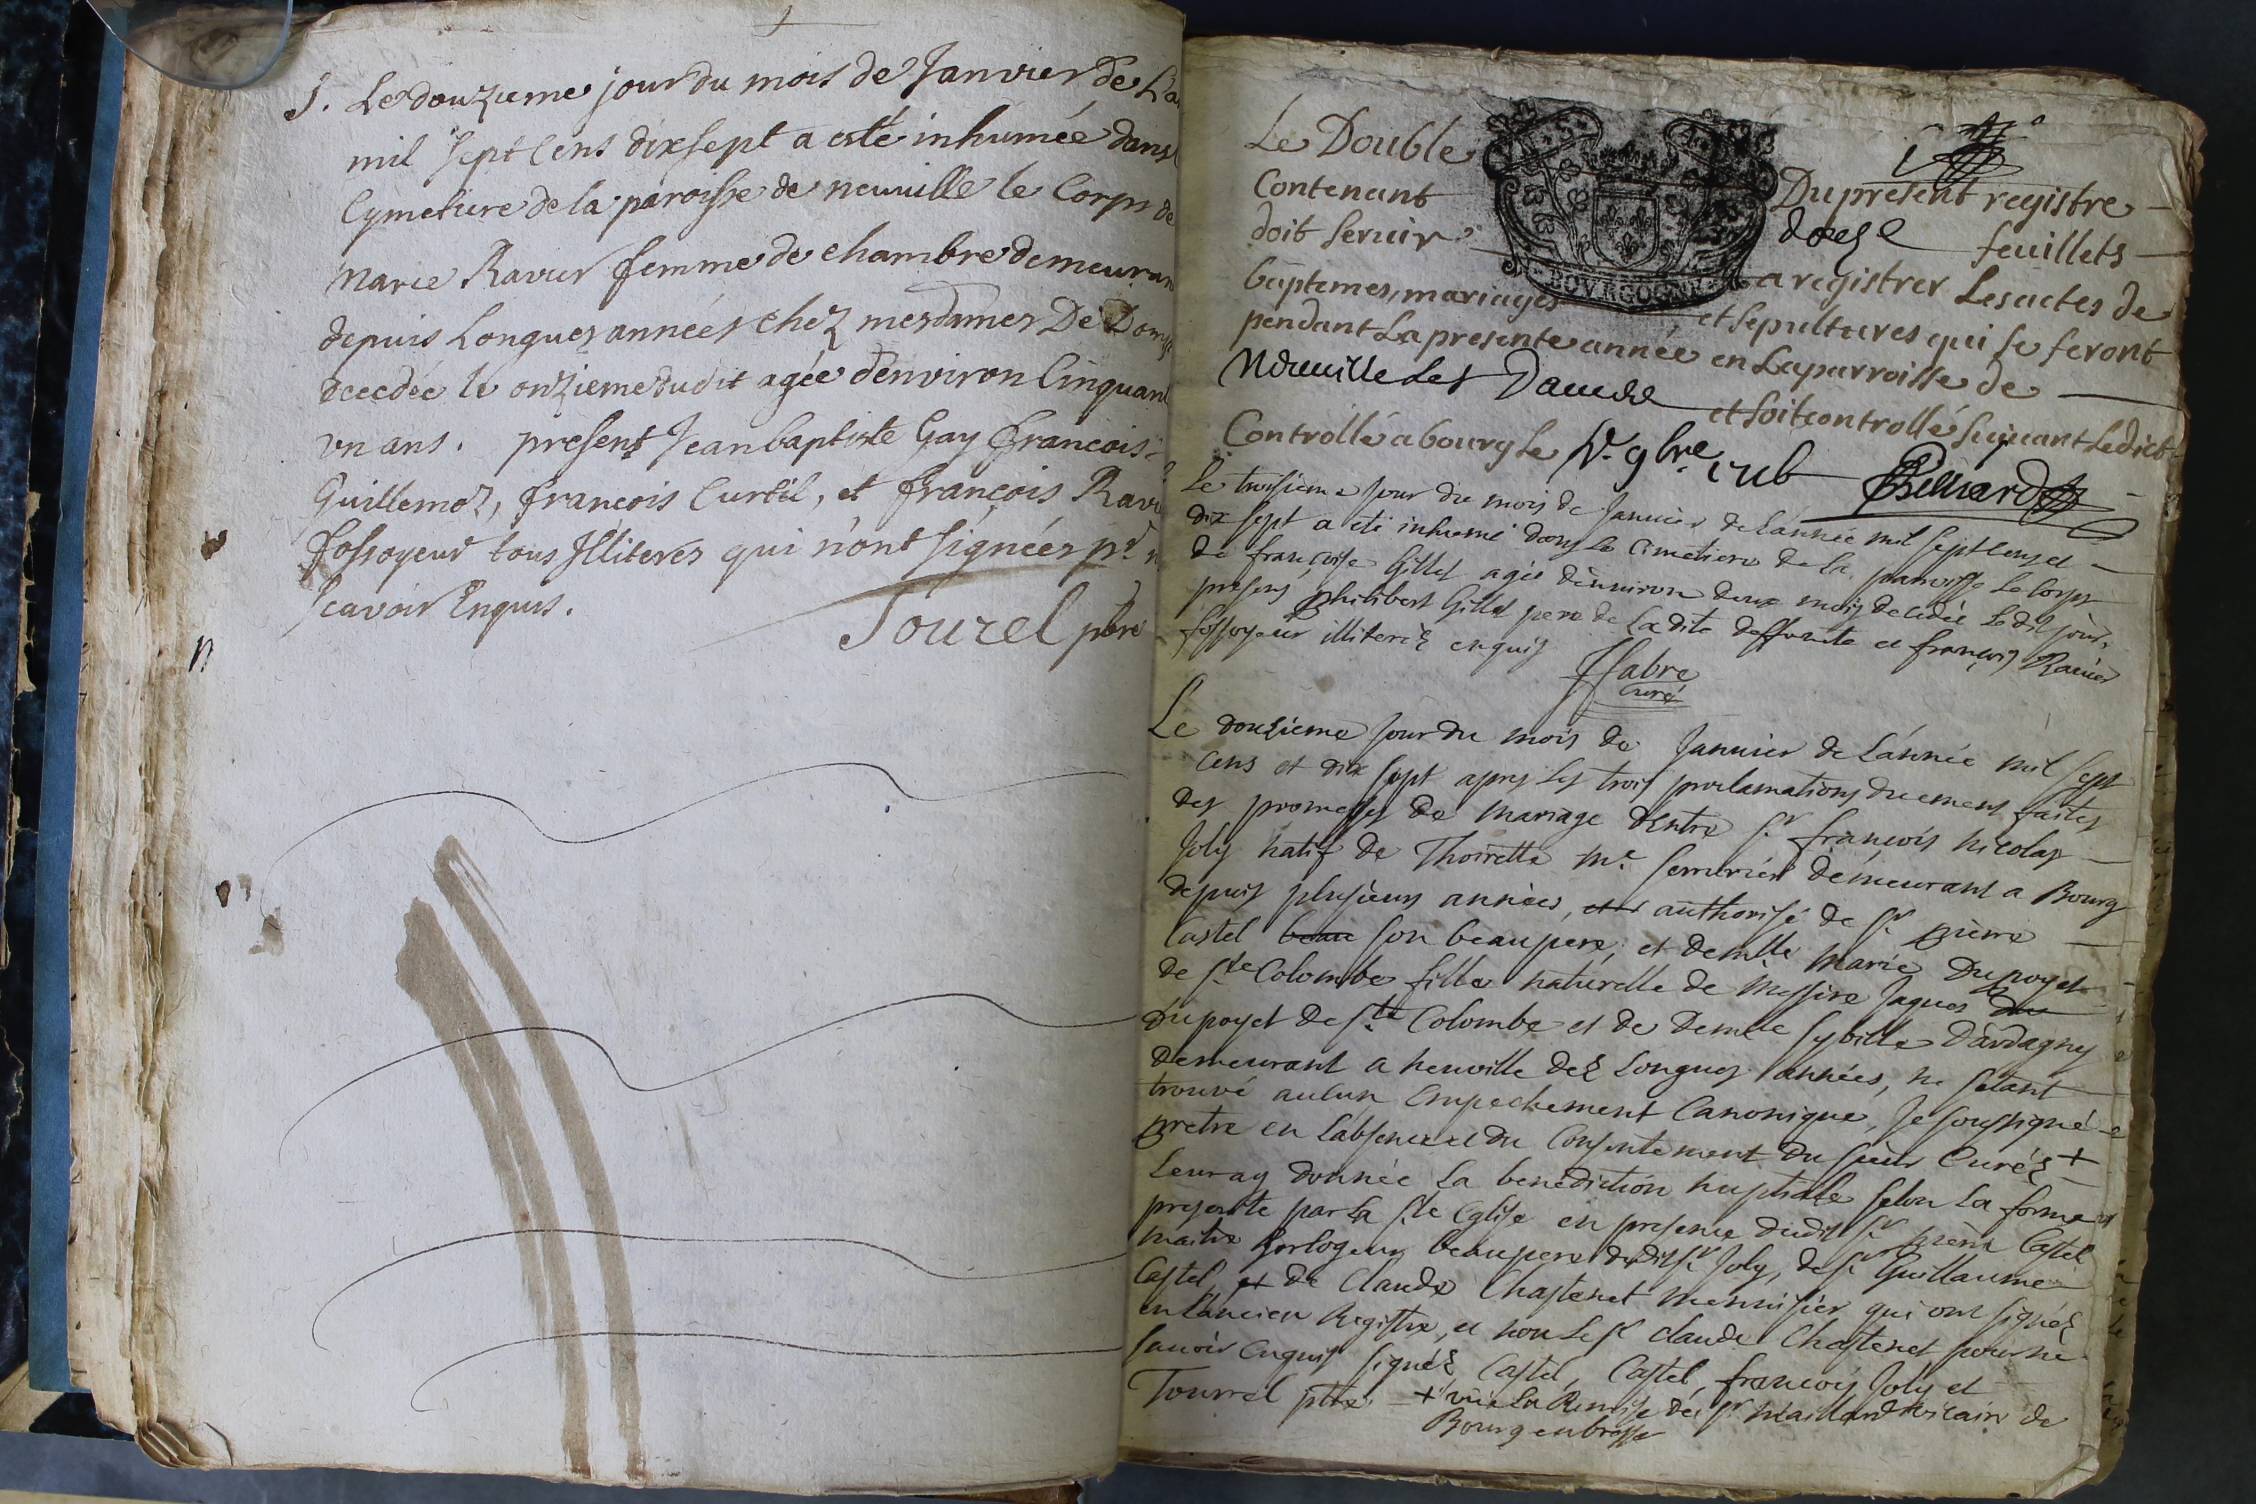 J. Le douzieme jour du mois de Janvier de L'a
mil sept Cens dixsept a esté inhumée dans
Cymetiere de la paroisse de neuville le Corps de
Marie Ravier femme de chambre demeuran
depuis Longues années chez mesdames De Dom
decedée le onzieme dudit agée d'environ Cinquan
un ans. present Jean baptiste Gay francois
Guillemoz, francois Curtil, et françois Ravi
fossoyeur tous Illiterés qui n'ont signées pr n
scavoir Enquis.
Tourel pbre
Le Double Du présent registre
Contenant douze feuillets
doit servir a registrer Les actes de
baptemes, mariages et sepultures qui se feront
pendant La presente année en La parroisse de
Neuville Les Dames et soit controllé suivant Ledict
Controllé a bourg Le 9bre 1716
Le troisieme Jour du mois de Janvier de L'année mil sept Cens et
dix sept a eté inhumé dans le Cimetiere de La parroisse Le Corps
de françoise Gillet agée d'environ deux mois decedée Le dit jour,
presens philibert Gillet pere de La dite deffunte et françois Ravier
fossoyeur illiteréz enquis
Fabre
Curé
Le douzieme Jour du mois de Janvier de L'année mil sept
Cens et dix sept apres Les trois proclamations duement faites
des promesses de Mariage d'Entre Sr. françois nicolas
Joly natif de Thoirette Me. Serrurier demeurant a Bourg
depuis plusieurs années, et authorisé de Sr. pierre
Castel beau son beaupere, et demlle Marie Dupoyet
de Ste Colombe fille naturelle de Messire Jaques du
dupoyet de Ste Colombe et de Demlle Sybille Dardagny
demeurant a neuville dez Longues années, ne s'etant
trouvé aucun Empechement Canonique, Je soussigné
pretre en L'absence et du Consentement du sieur Curéz +
Leur ay donnée La benediction nuptiale selon La forme
prescrite par La Ste Eglise en presence dudit Sr pierre Castel
maitre horlogeur beaupere dudit Sr. Joly, de Sr Guillaume
Castel, et de Claude Chastenet Mennisier qui ont signéz
en L'ancien Registre, et non Le Sr Claude Chastenet pour ne
savoir Enquis signéz Castel, Castel, françois Joly et
Tourrel ptre + vüe La Remise de Sr Maillard vicaire de
Bourg en bresse